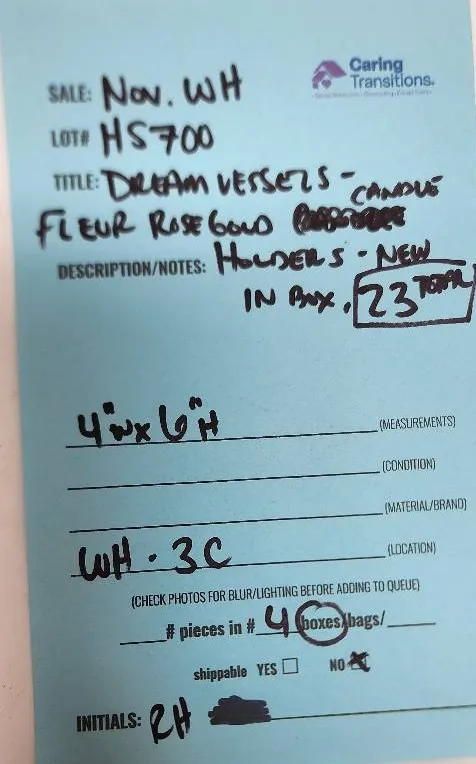 Caring
Transitions.
SALE: Nov. WH
LOT# HS700
TITLE: DREAM VESSELS - CANDLE
FLEUR ROSE GOLD
DESCRIPTION/NOTES: HOLDERS - NEW
IN BOX. 23 TOTAL
4"W x 6"H (MEASUREMENTS)
(CONDITION)
(MATERIAL/BRAND)
WH - 3C (LOCATION)
(CHECK PHOTOS FOR BLUR/LIGHTING BEFORE ADDING TO QUEUE)
# pieces in # 4 boxes/bags/
shippable YES ☐ NO ☒
INITIALS: RH